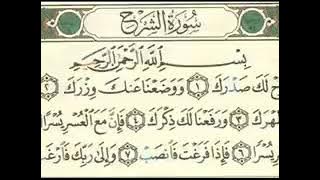 سُورَةُ الشَّرْحِ
بِسْمِ اللَّهِ الرَّحْمَٰنِ الرَّحِيمِ
حْ لَكَ صَدْرَكَ ۝١ وَوَضَعْنَا عَنكَ وِزْرَكَ ۝٢
هْرَكَ ۝٣ وَرَفَعْنَا لَكَ ذِكْرَكَ ۝٤ فَإِنَّ مَعَ الْعُسْرِ يُسْرًا
يُسْرًا ۝٦ فَإِذَا فَرَغْتَ فَانصَبْ ۝٧ وَإِلَىٰ رَبِّكَ فَارْغَب